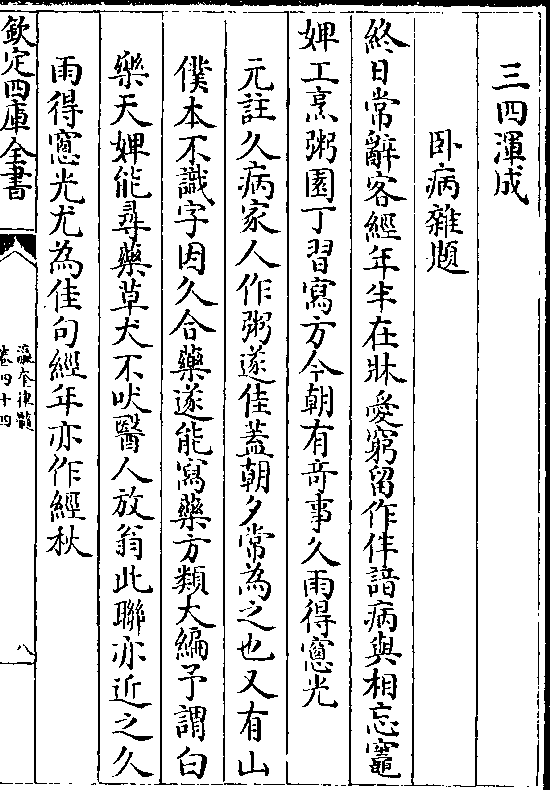 三四渾成
卧病雜題
終日常辭客經年半在牀愛窮留作伴諳病與相忘竈
婢工烹粥園丁習寫方今朝有竒事久雨得窻光
元註久病家人作粥遂佳蓋朝夕常為之也又有山
僕本不識字因久合藥遂能寫藥方類大編予謂白
樂天婢能尋藥草犬不吠醫人放翁此聯亦近之久
雨得窻光尤為佳句經年亦作經秋
欽定四庫全書
瀛奎律髓
卷四十四
八